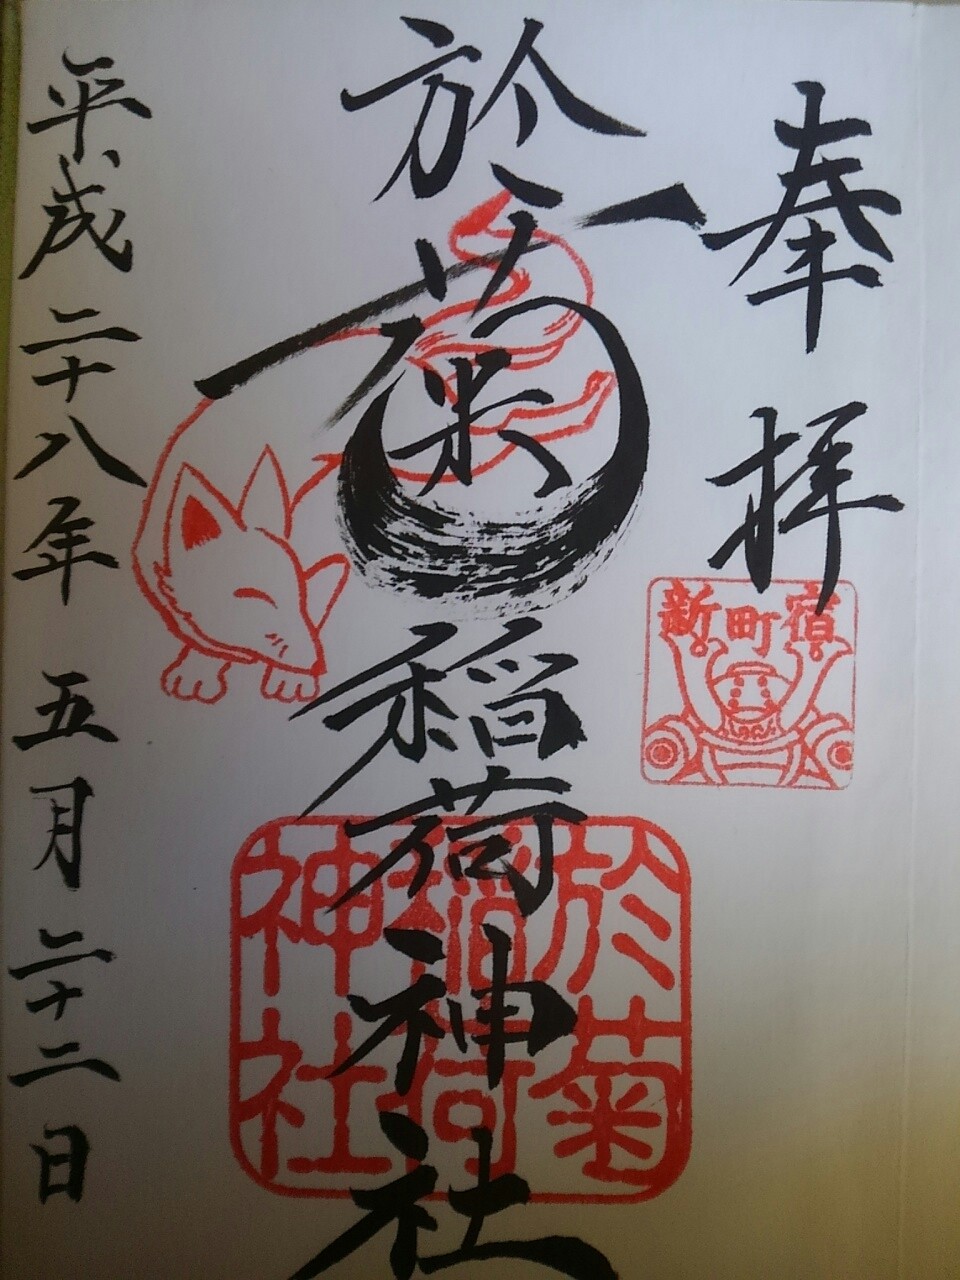 奉拝
新町宿
於菊稲荷神社
於菊
稲荷
神社
平成二十八年 五月 二十二日